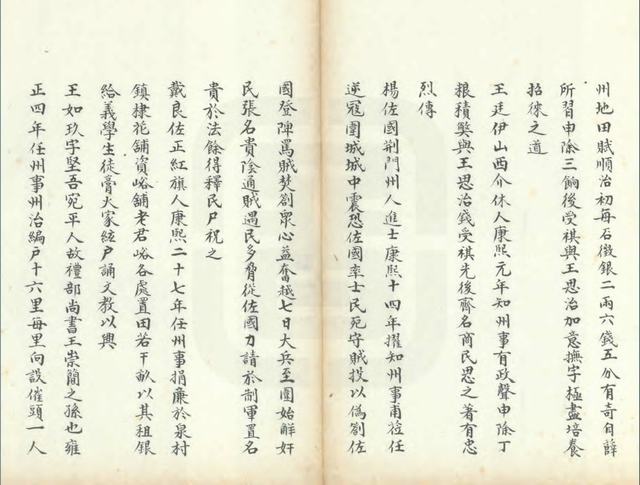 州地田賦順治初每石徵銀二兩六錢五分有奇自薛
所習申除三餉後受祺與王思治加意撫字極盡培養
招徠之道
王廷伊山西介休人康熙元年知州事有政聲申除丁
根積獘與王思治錢受祺先後齊名商民思之著有忠
烈傳
楊佐國荆門州人進士康熙十四年擢知州事甫蒞任
逆寇圍城城中震恐佐國率士民死守賊投以偽劄佐
國登陴罵賊焚劄衆心益奮越七日大兵至圍始解奸
民張名貴陰通賊遇民多脅從佐國力請於制軍置名
貴於法餘得釋民尸祝之
戴良佐正紅旗人康熙二十七年任州事捐廉於泉村
鎮棣花舖資峪舖老君峪各處置田若干畝以其租銀
給義學生徒膏火家絃户誦文教以興
王如玖字堅吾宛平人故禮部尚書王崇簡之孫也雍
正四年任州事州治編户十六里每里向設催頭一人